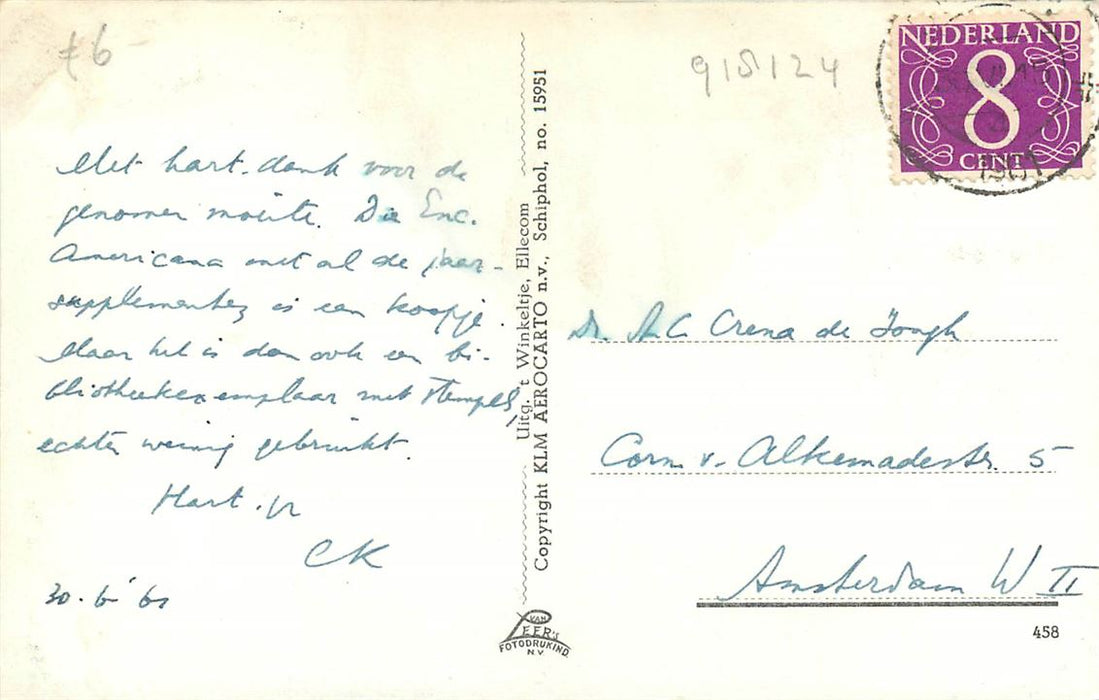 £6-
918124
NEDERLAND
8
CENT
1961
Met hart. dank voor de
genomen moeite. Die Enc.
Americana met al de jaar-
supplementen is een koopje.
Maar het is dan ook een bi-
bliotheekexemplaar met stempels,
echter weinig gebruikt.
Hart. gr
CK
30-6-'61
Uitg. 't Winkeltje, Ellecom
Copyright KLM AEROCARTO n.v., Schiphol, no. 15951
VAN
LEER's
FOTODRUKIND.
N.V.
Dr. A.C Crena de Iongh
Corn. v. Alkemadestr. 5
Amsterdam W II
458